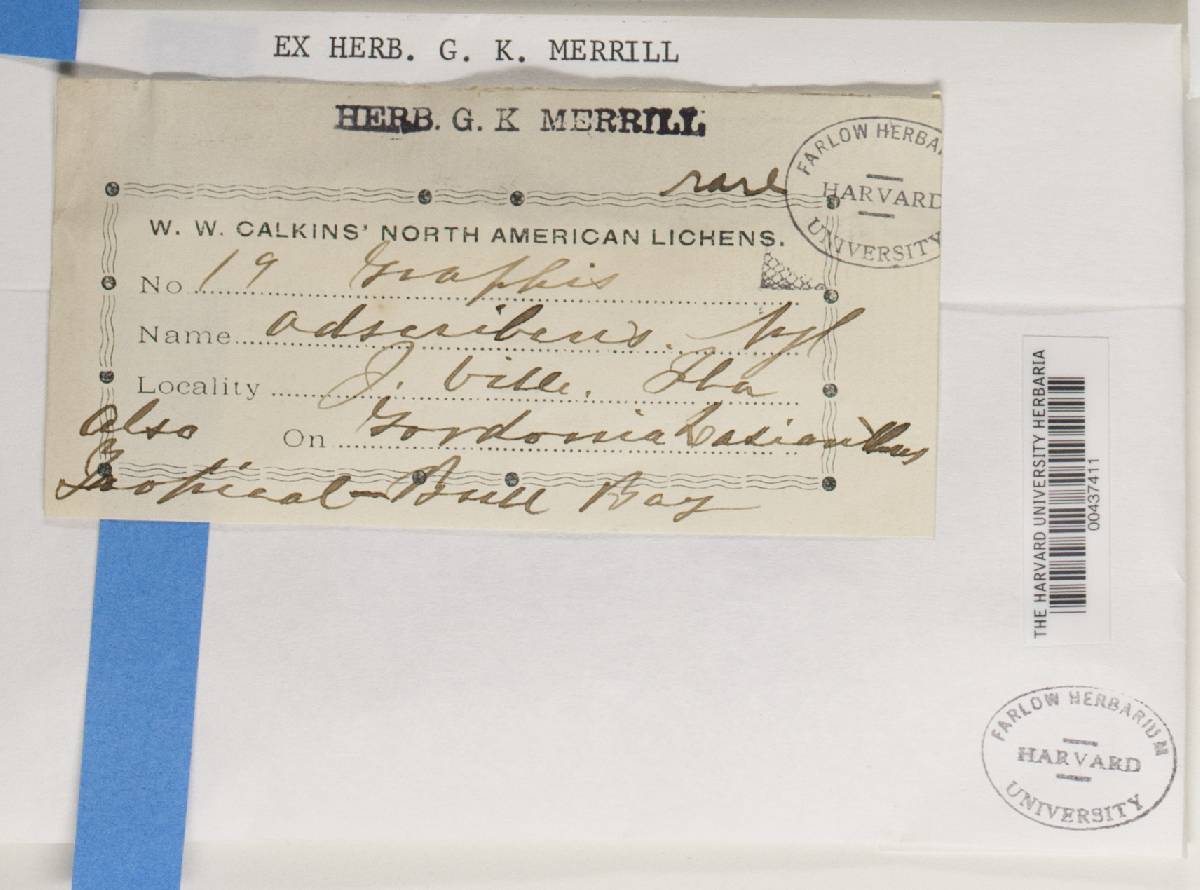 EX HERB. G. K. MERRILL
HERB. G. K MERRILL
rare
FARLOW HERBA
HARVARD
UNIVERSITY
W. W. CALKINS' NORTH AMERICAN LICHENS.
No 19 Graphis
Name adscribens. Nyl
Locality J. ville, Fla
also On Gordonia Lasianthus
Tropical - Bull Bay
THE HARVARD UNIVERSITY HERBARIA
00437411
FARLOW HERBARIUM
HARVARD
UNIVERSITY